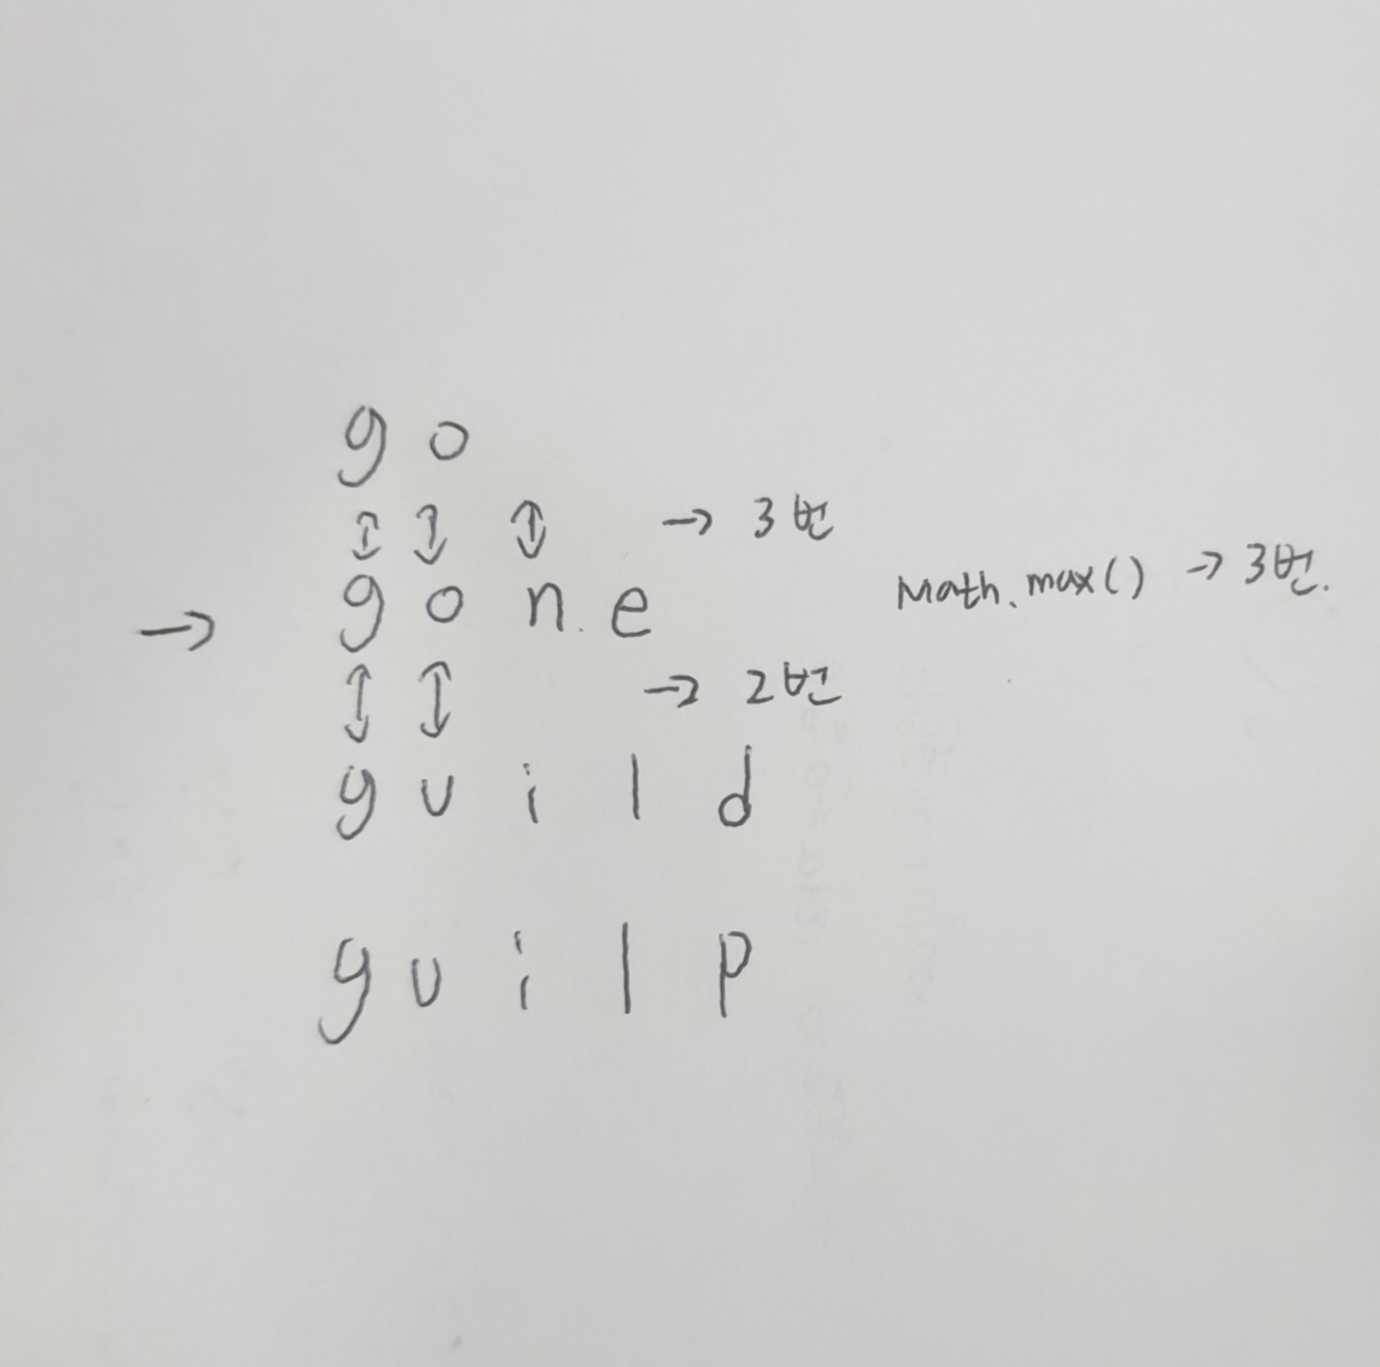 go
→ 3번
gone
Math.max() → 3번.
→
→ 2번
guild
guilp